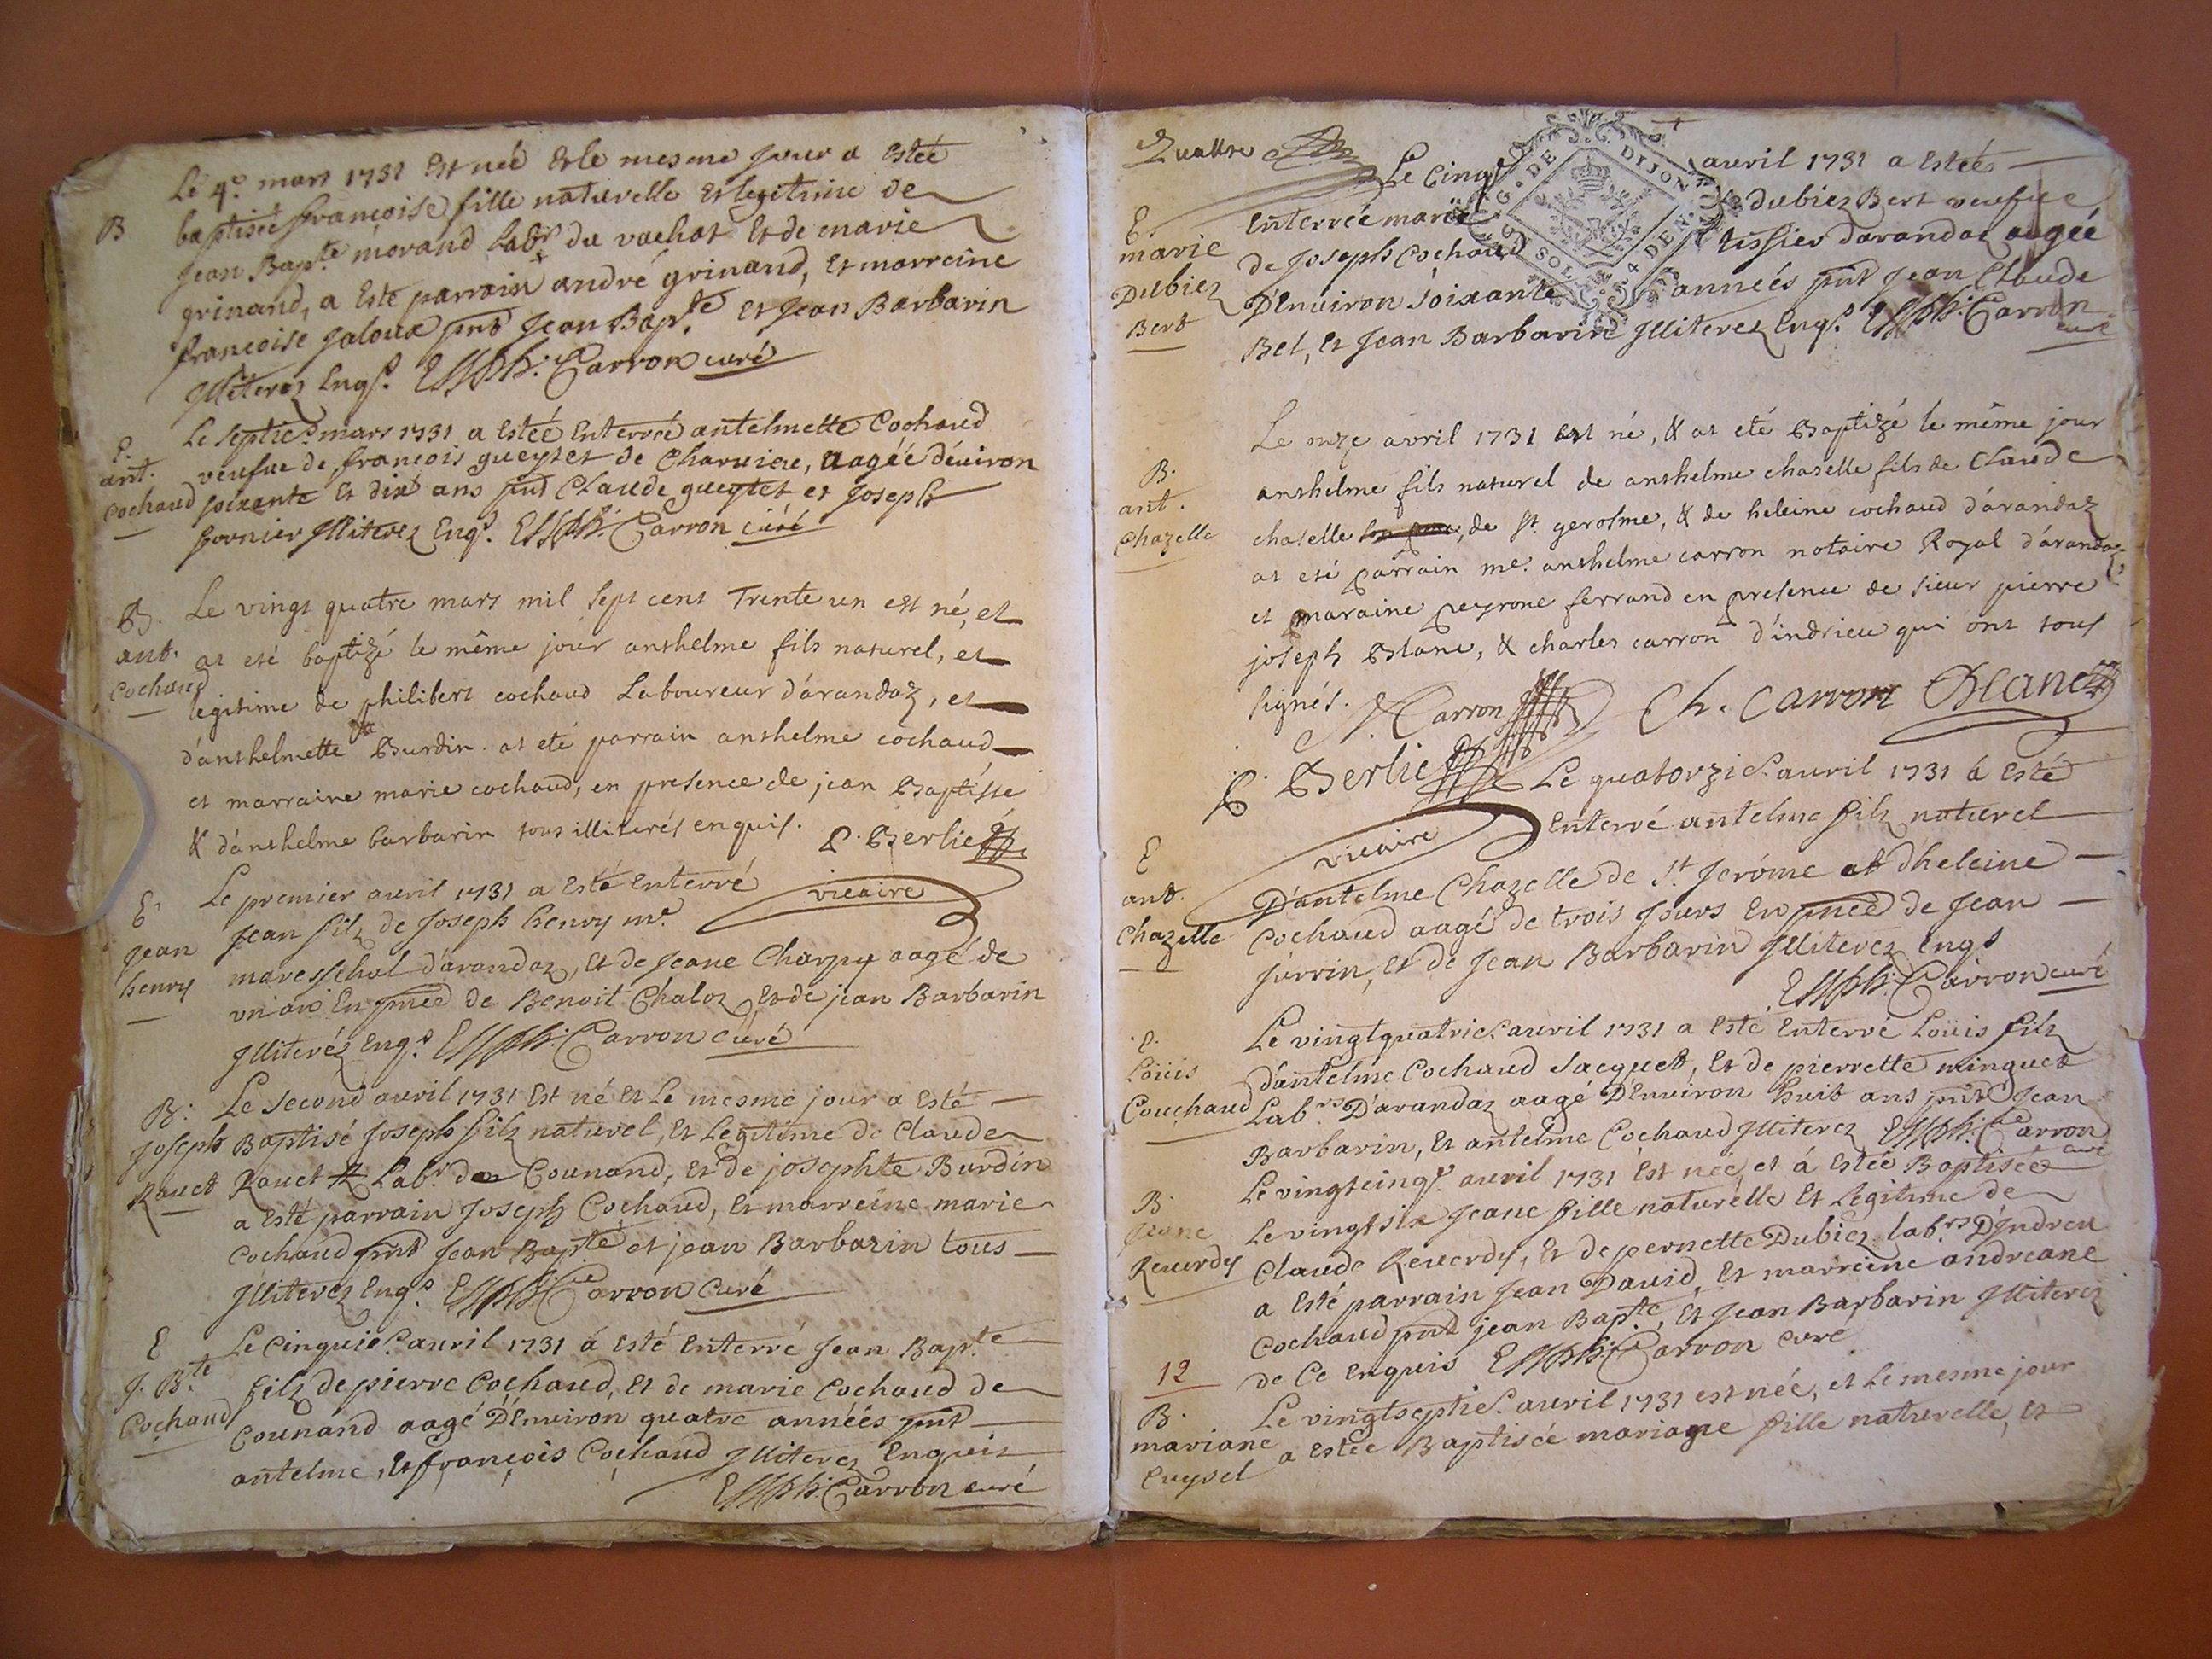 Le 4.e mars 1731 Est néé Et le mesme Jour a Estéé
B
baptiséé françoise fille naturelle Et legitime de
Jean Bap.te morand Lab.r du vachat Et de marie
grinand, a Esté parrain andré grinand, Et marreine
françoise Jaloux pnt Jean Bap.te Et Jean Barbarin
Jlliterez Enq.s Carron curé
E.
ant.
Cochaud
Le septie.e mars 1731 a Estéé Enterréé antelmette Cochaud
veufue de françois gueytet de Charuieu, aagéé déuiron
soixante Et dix ans pnt Claude gueytet et Joseph
fornier Jlliterez Enq.s Carron curé
B.
ant.
Cochaud
Le vingt quatre mars mil sept cent Trente un est né, et
at eté baptizé le même jour anthelme fils naturel, et
legitime de philibert cochaud Laboureur d'arandaz, et
d'anthelmette Burdin. at eté parrain anthelme cochaud
et marraine marie cochaud, en presence de jean Baptiste
& d'anthelme barbarin tous illiterés enquis. P. Berlie
vicaire
E
Jean
henry
Le premier auril 1731 a Esté Enterré
Jean filz de Joseph henry m.e
maresschal d'arandaz, Et de Jeane Charpy aagé de
un an En pnce de Benoit Chaloz, Et de jean Barbarin
Jlliteréz Enq.s Carron curé
B.
Joseph
Rauet
Le second auril 1731 Est né Et Le mesme jour a Esté
Baptisé Joseph filz naturel, Et Legitime de Claude
Rauet Lab.r de Counand, Et de josephte Burdin
a Esté parrain Joseph Cochaud, Et marreine marie
Cochaud pnt Jean Bap.te et jean Barbarin tous
Jlliterez Enq.s Carron Curé
E
J. B.te
Cochaud
Le Cinquie.e auril 1731 á Esté Enterré Jean Bap.te
filz de pierre Cochaud, Et de marie Cochaud de
Counand aagé D'Enuiron quatre annéés pnt
antelme, Et françois Cochaud Jlliterez Enquis
Carron curé
Quattre
G. DE DIJON
SOL 4 DEN
E.
marie
Dubiez
Bert
Le Cinq auril 1731 a Estéé
Enterréé marie dubiez Bert veufue
de Joseph Cochaud tissier darandaz aagéé
D'Enuiron soixante annéés pnt Jean Claude
Bel, Et Jean Barbarin Jlliterez Enq.s Carron
curé
B.
ant.
Chazelle
Le onze avril 1731 est né, & at eté Baptizé le même jour
anthelme fils naturel de anthelme chaselle fils de Claude
chaselle, de st. gerosme, & de heleine cochaud d'arandaz
at eté parrain me. anthelme carron notaire Royal d'arandaz
et maraine peyrone ferrand en presence de sieur pierre
joseph Blanc, & charles carron d'indrieu qui ont tous
signés. Carron Ch. Carron Blanc
P. Berlie
vicaire
E
ant.
Chazelle
Le quatorzie.e auril 1731 á Esté
Enterré antelme filz naturel
D'antelme Chazelle de St. Jeróme et dheleine
Cochaud aagé de trois Jours En pnce de Jean
Jurrin, Et de Jean Barbarin Jlliterez Enqs
Carron curé
E.
Loüis
Couchaud
Le vingtquatrie.e auril 1731 a Esté Enterré Loüis filz
d'antelme Cochaud Jacquet, Et de pierrette minguet
Lab.rs D'arandaz aagé D'Enuiron huit ans pnt Jean
Barbarin, Et antelme Cochaud Jlliterez Carron
curé
B.
Jeane
Reuerdy
Le vingtcinq.e auril 1731 Est néé et á Estéé Baptiséé
Le vingtsix Jeane fille naturelle Et Legitime de
Claude Reuerdy, Et de pernette Dubiez lab.rs D'Jndrieu
a Esté parrain Jean Dauid, Et marreine andreane
Cochaud pnt jean Bap.te, Et Jean Barbarin Jlliterez
de Ce Enquis Carron curé
12
B.
mariane
Cuysel
Le vingtseptie.e auril 1731 est née, et Le mesme jour
a estéé Baptiséé mariane fille naturelle, Et